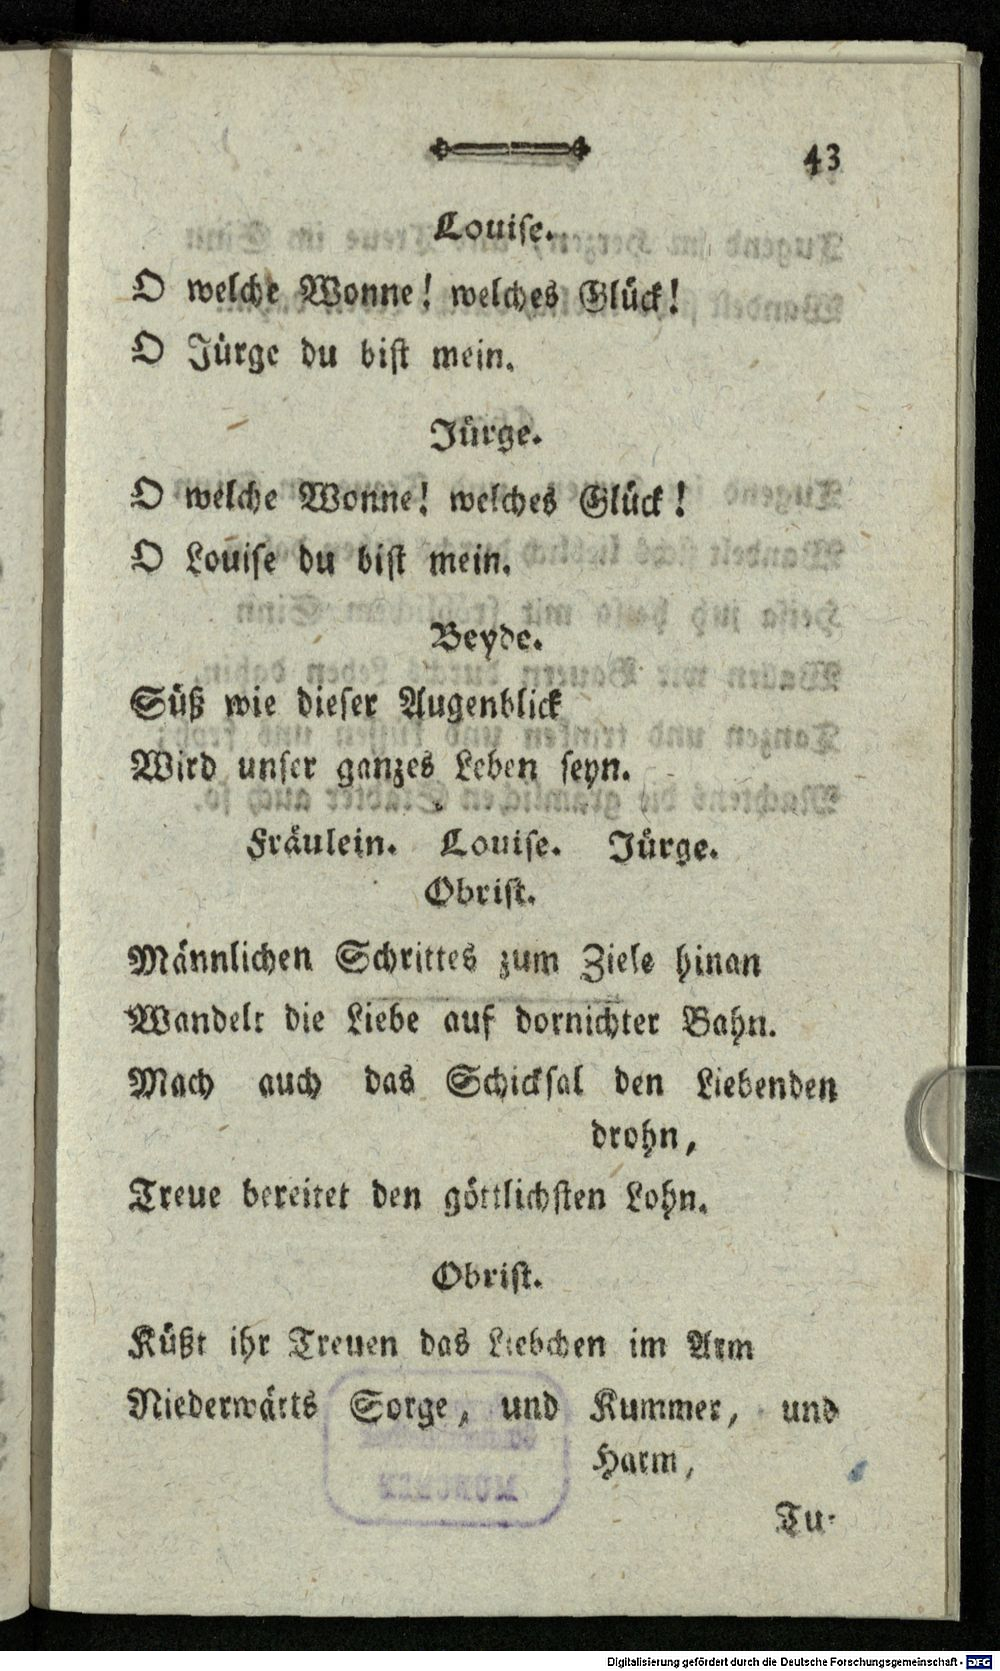 43
Louise.
O welche Wonne! welches Glück!
O Jürge du bist mein.
Jürge.
O welche Wonne! welches Glück!
O Louise du bist mein.
Beyde.
Süß wie dieser Augenblick
Wird unser ganzes Leben seyn.
Fräulein. Louise. Jürge.
Obrist.
Männlichen Schrittes zum Ziele hinan
Wandelt die Liebe auf dornichter Bahn.
Mach auch das Schicksal den Liebenden
drohn,
Treue bereitet den göttlichsten Lohn.
Obrist.
Küßt ihr Treuen das Liebchen im Arm
Niederwärts Sorge, und Kummer, und
Harm,
Tu-
Digitalisierung gefördert durch die Deutsche Forschungsgemeinschaft - DFG